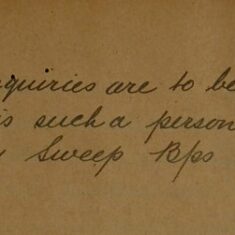 nquiries are to be
is such a person
Sweep Bps